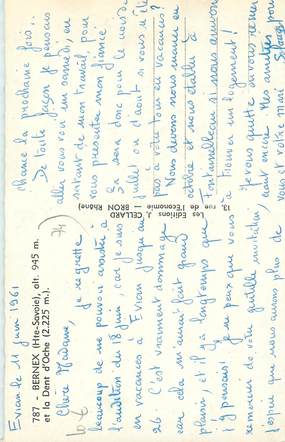 Evian le 11 juin 1961
787 - BERNEX (Hte-Savoie), alt. 945 m.
et la Dent d'Oche (2.225 m.).
Chère Madame,
je regrette
beaucoup de ne pouvoir assister à
l'audition du 18 juin, car je suis
en vacances à Evian jusqu'au
26. C'est vraiment dommage
car cela m'aurait fait grand
plaisir, et il y a longtemps que
j'y pensais! je ne peux que vous
remercier de votre gentille invitation,
j'espère que nous aurons plus de
13, rue de l'Economie — BRON (Rhône)
Les Editions J. CELLARD
chance la prochaine fois..
De toute façon je pensais
aller vous voir un samedi, en
sortant de mon travail, pour
vous présenter mon fiancé
Ce sera donc pour le mois de
juillet ou d'août si vous n'êtes
pas à votre tour en vacances?
Nous devons nous marier en
octobre et nous établir à
Fontainebleau si nous arrivons
à trouver un logement!
Je vous quitte en vous remerciant
encore. Mes amitiés pour
vous et votre mari.